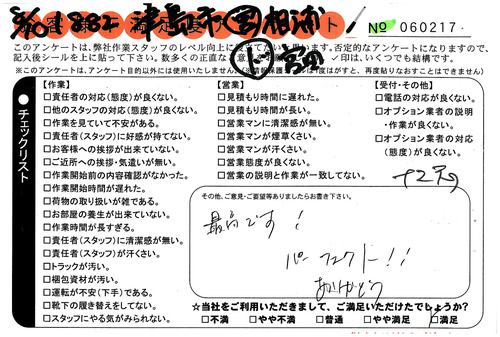 № 060217
このアンケートは、弊社作業スタッフのレベル向上に
記入後シールを上に貼って下さい。数多くの正直な
印は、いくつでも結構です。
※このアンケートは、アンケート目的以外には使用いたしません。
チェックリスト
【作業】
□責任者の対応(態度)が良くない。
□他のスタッフの対応(態度)が良くない。
□作業を見ていて不安がある。
□責任者(スタッフ)に好感が持てない。
□お客様への挨拶が出来ていない。
□ご近所への挨拶・気遣いが無い。
□作業開始前の内容確認がなかった。
□作業開始時間が遅れた。
□荷物の取り扱いが雑である。
□お部屋の養生が出来ていない。
□作業時間が長すぎる。
□責任者(スタッフ)に清潔感が無い。
□責任者(スタッフ)が汗くさい。
□トラックが汚い。
□梱包資材が汚い。
□運転が不安(下手)である。
□靴下の履き替えをしてない。
□スタッフにやる気がみられない。
【営業】
□見積もり時間に遅れた。
□見積もり時間が長い。
□営業マンに清潔感が無い。
□営業マンが煙草くさい。
□営業マンが汗くさい。
□営業態度が良くない。
□営業の説明と作業が一致してない。
【受付・その他】
□電話の対応が良くない。
□オプション業者の説明
・作業が良くない。
□オプション業者の対応
(態度)が良くない。
その他、ご意見・ご要望等ありましたらお書き下さい。
最高です!
パーフェクト!!
ありがとう
☆当社をご利用いただきまして、ご満足いただけたでしょうか?
□不満 □やや不満 □普通 □やや満足 □満足